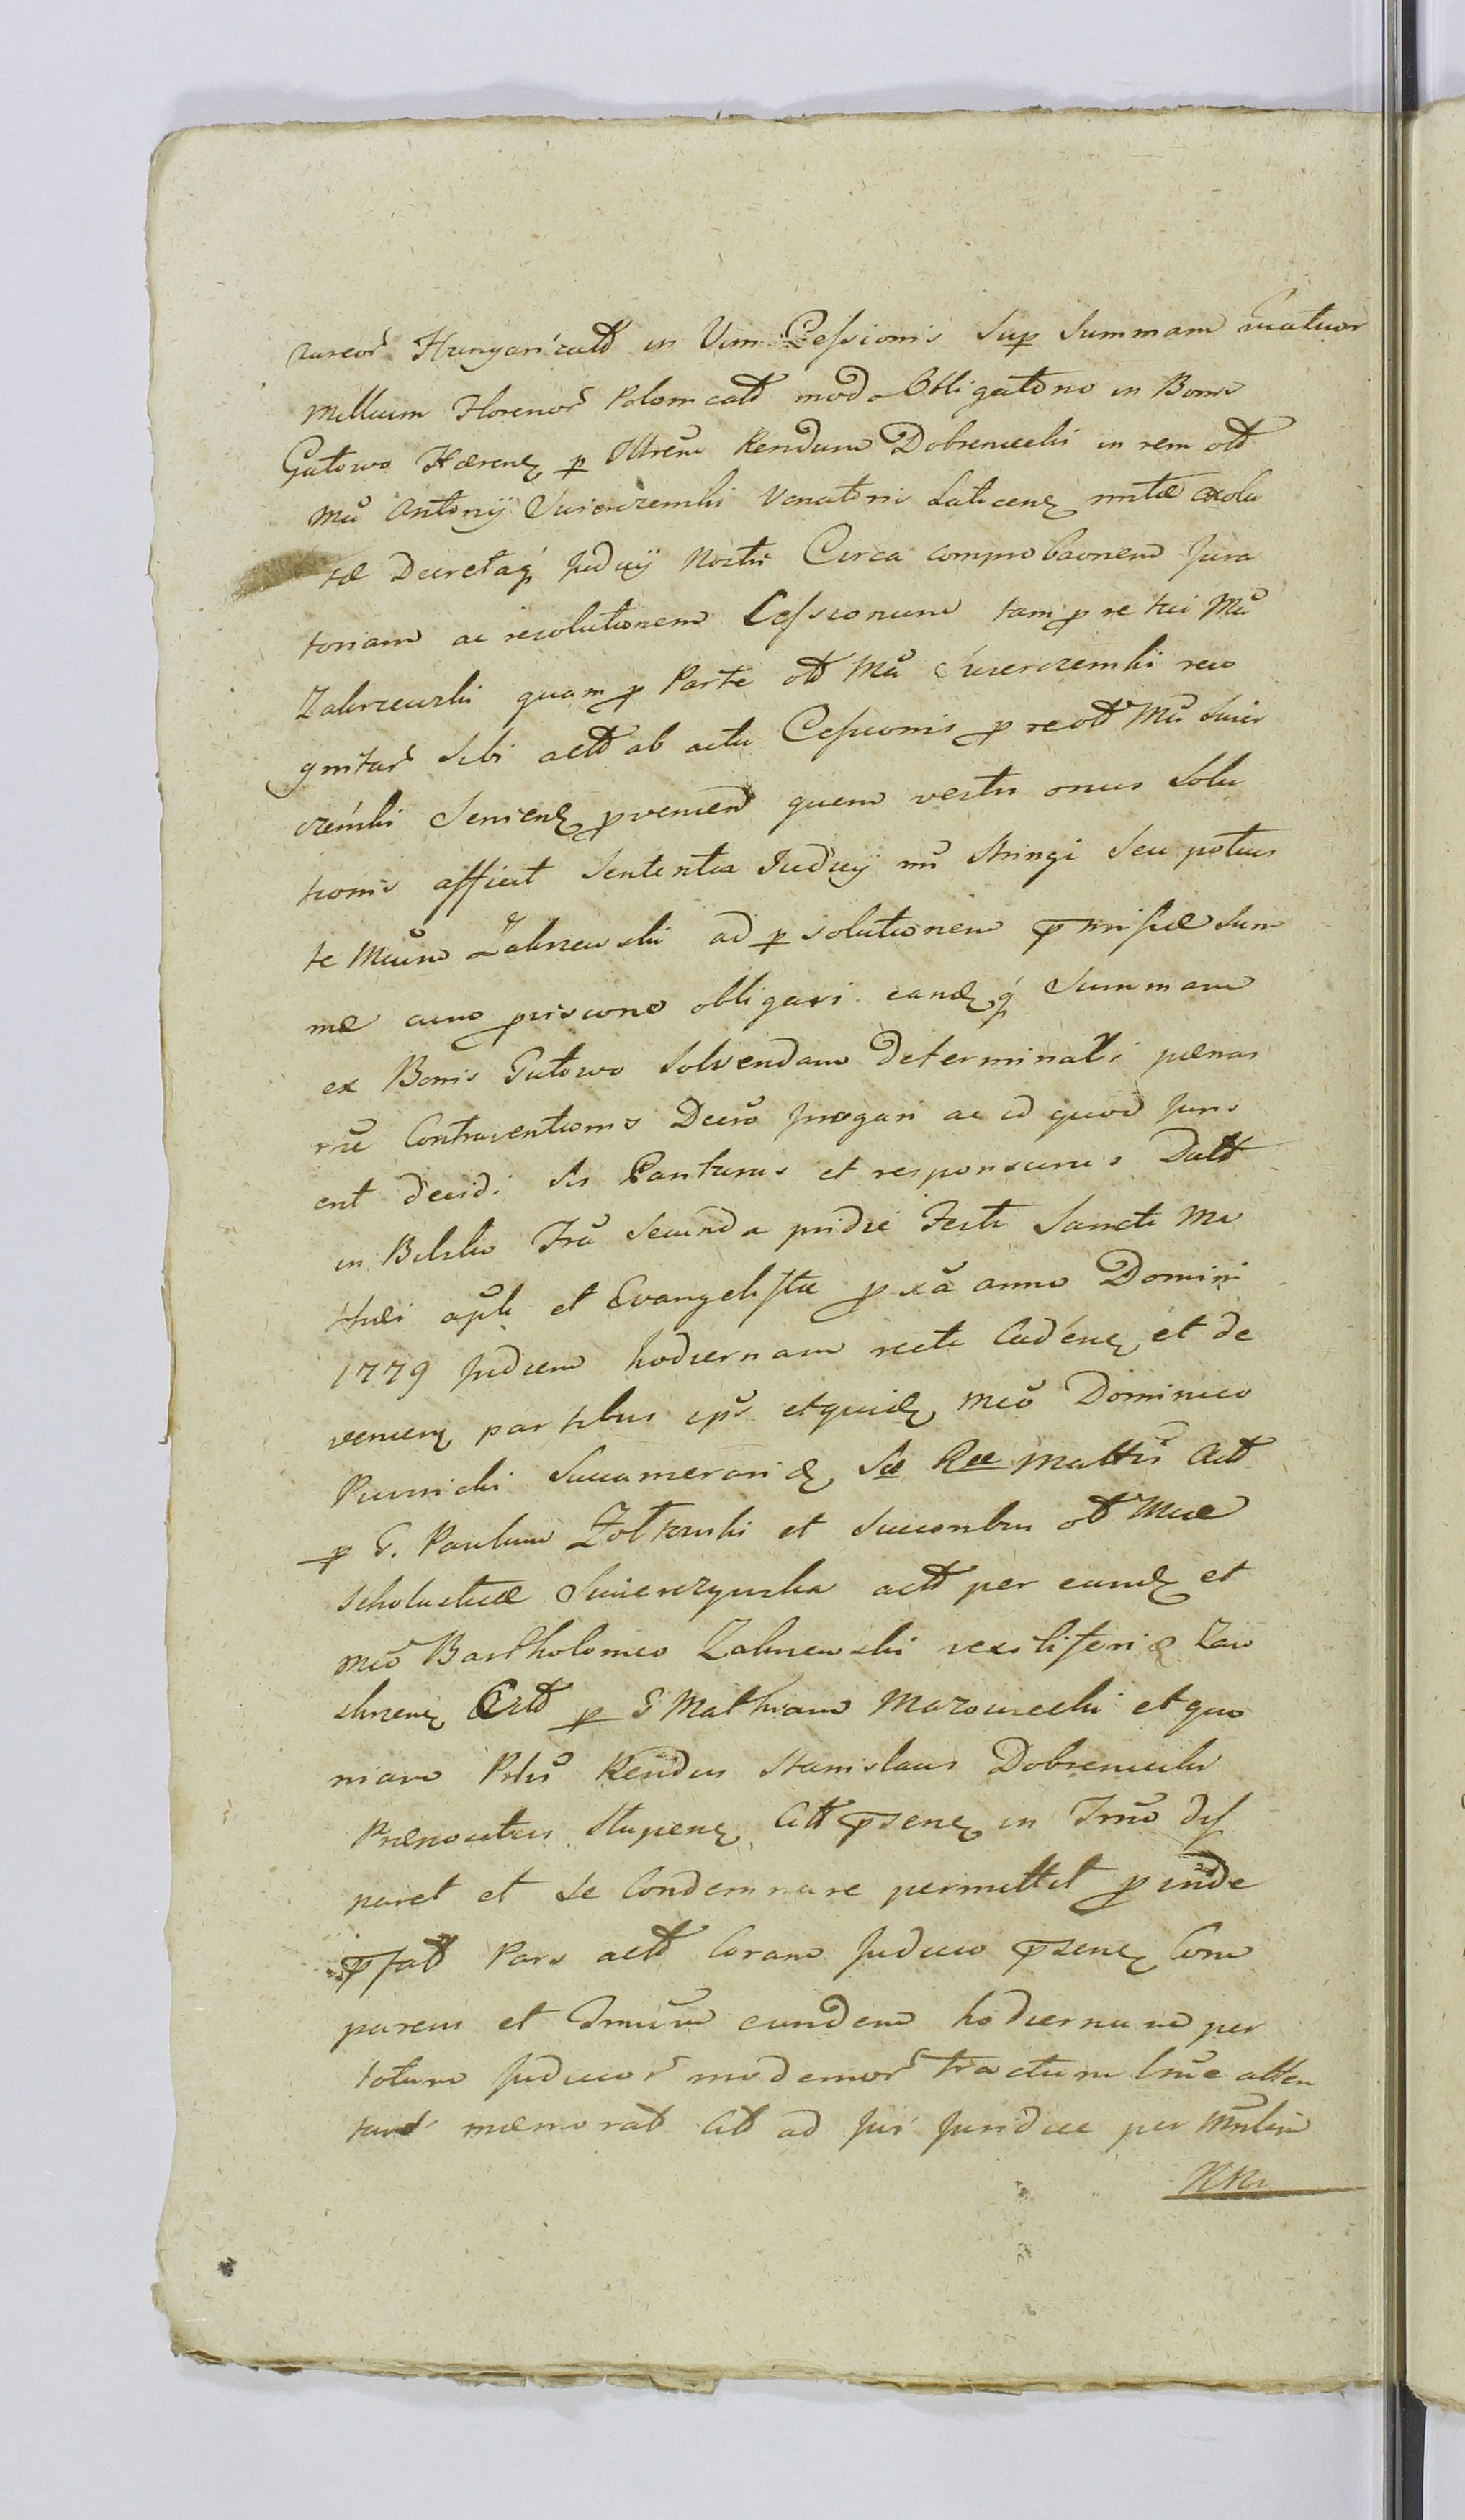 aureor Hungaricald in Vim Cessionis Sup Summam quatuor
millium Florenor Polonicald modo Obligatono in Bonis
Gutowo Hæren p Illrem Rendum Dobreniecki in rem old
Mci Antonij Swierczewski Venatoris Laticen ritæ exolu
tæ Decretaq Judicij Nostri Circa comprobaonem Jura
toriam ac resolutionem Cessionum tam p re tui Mci
Zakrzewski quam p Parte old Mci Swierczewski reco
gnitar Sibi actd ab actu Cessionis p re old Mci Swier
czewski Servien proveniend quem vestri onus Solu
tionis afficit Sententia Judicij nri Stringi Seu potius
te Mcum Zakrzewski ad p solutionem præmissæ Sum
mæ cum obligari eandq Summam
ex Bonis Gutowo Solvendam determinari pænas
Contraventionis Decreto irrogari ac id quod Juris
erit decidi Sis Pariturus et responsurus Datd
in Bilsko Fria Secunda pridie Festi Sancti Ma
thæi apli et Evangelistæ pxa anno Domini
1779 Judicem hodiernam recte Caden et de
venien partibus ipsis et quid Mco Dominico
Succamerarid Sæ Ræ Mattis Actd
p G. Paulum Żołtowski et Succonbus old Mcæ
Scholasticæ Swierczyńska actd per eund et
Mco Bartholomeo Zakrzewski vexiliferid Zaw
skrzen Citd p G Mathiam Mazowiecki et quo
niam Rendus Stanislaus Dobreniecki
Præpositus Stupen Citt præsen in Trno dis
paret et Se Condemnare permittit proinde
præfat Pars actd Coram Judicio præsen Com
parens et Trnum eundem hodiernum per
totum Judicior modernor tractum atten
tand memorat Citd ad Jus Juridice per Mnlem